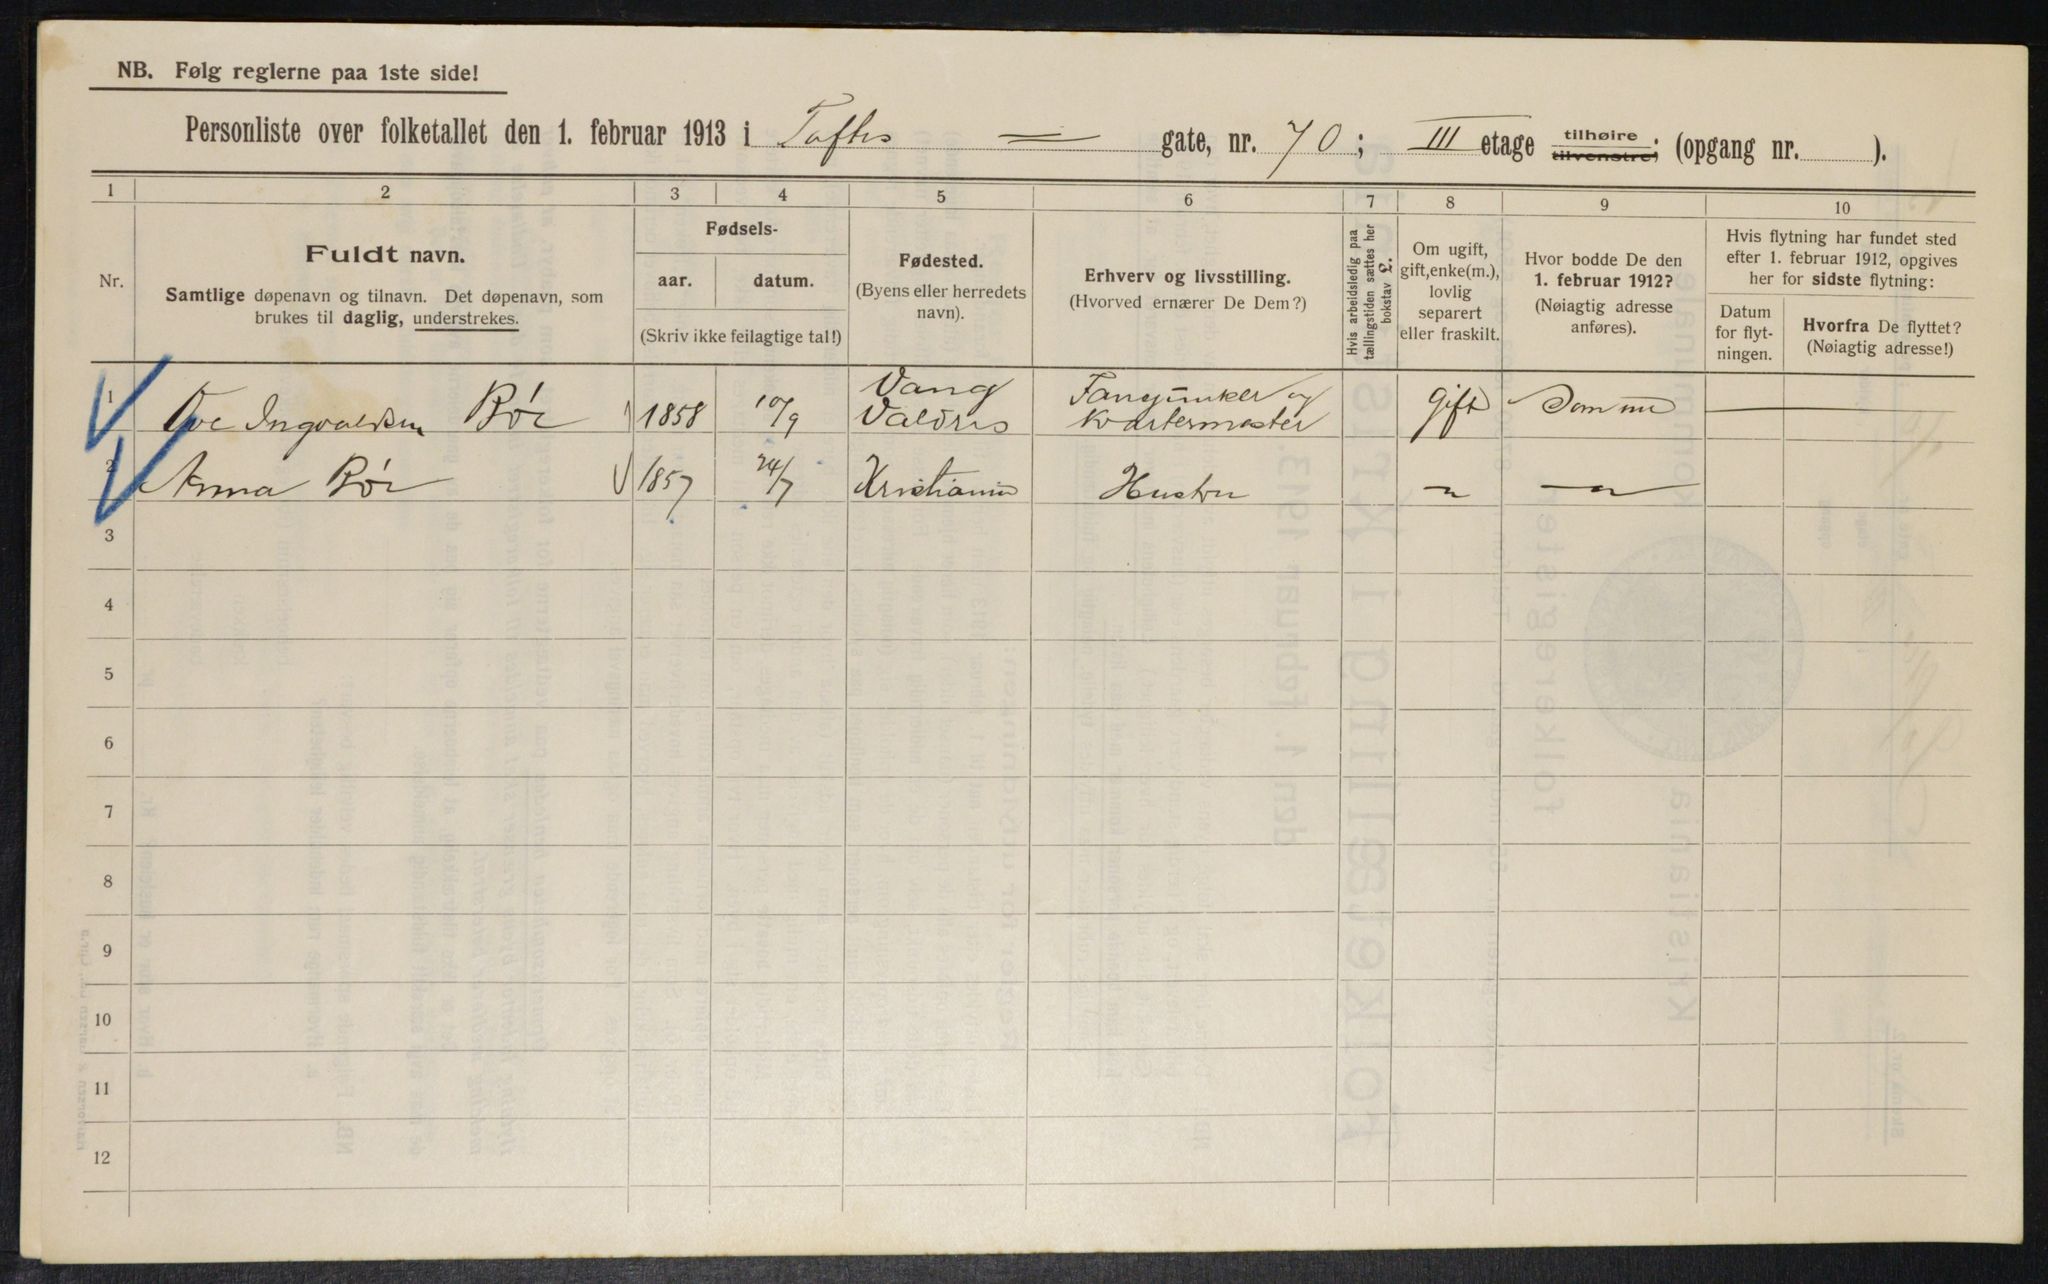 NB. Følg reglerne paa 1ste side!
Personliste over folketallet den 1. februar 1913 i Toftes gate, nr. 70; III etage tilhøire tilvenstre; (opgang nr. ).
1 2 3 4 5 6 7 8 9 10
Nr.
Fuldt navn.
Samtlige døpenavn og tilnavn. Det døpenavn, som
brukes til daglig, understrekes.
Fødsels-
aar. datum.
(Skriv ikke feilagtige tal!)
Fødested.
(Byens eller herredets
navn).
Erhverv og livsstilling.
(Hvorved ernærer De Dem?)
Hvis arbeidsledig paa
tællingstiden sættes her
bokstav £.
Om ugift,
gift, enke(m.),
lovlig
separert
eller fraskilt.
Hvor bodde De den
1. februar 1912?
(Nøiagtig adresse
anføres).
Hvis flytning har fundet sted
efter 1. februar 1912, opgives
her for sidste flytning:
Datum
for flyt-
ningen.
Hvorfra De flyttet?
(Nøiagtig adresse!)
1 Ingvaldsen Bøe 1858 10/9 Vang Valdres Fanejunker og Kvartermester gift Samme
2 Anna Bøe 1857 24/7 Kristiania Hustru
3
4
5
6
7
8
9
10
11
12